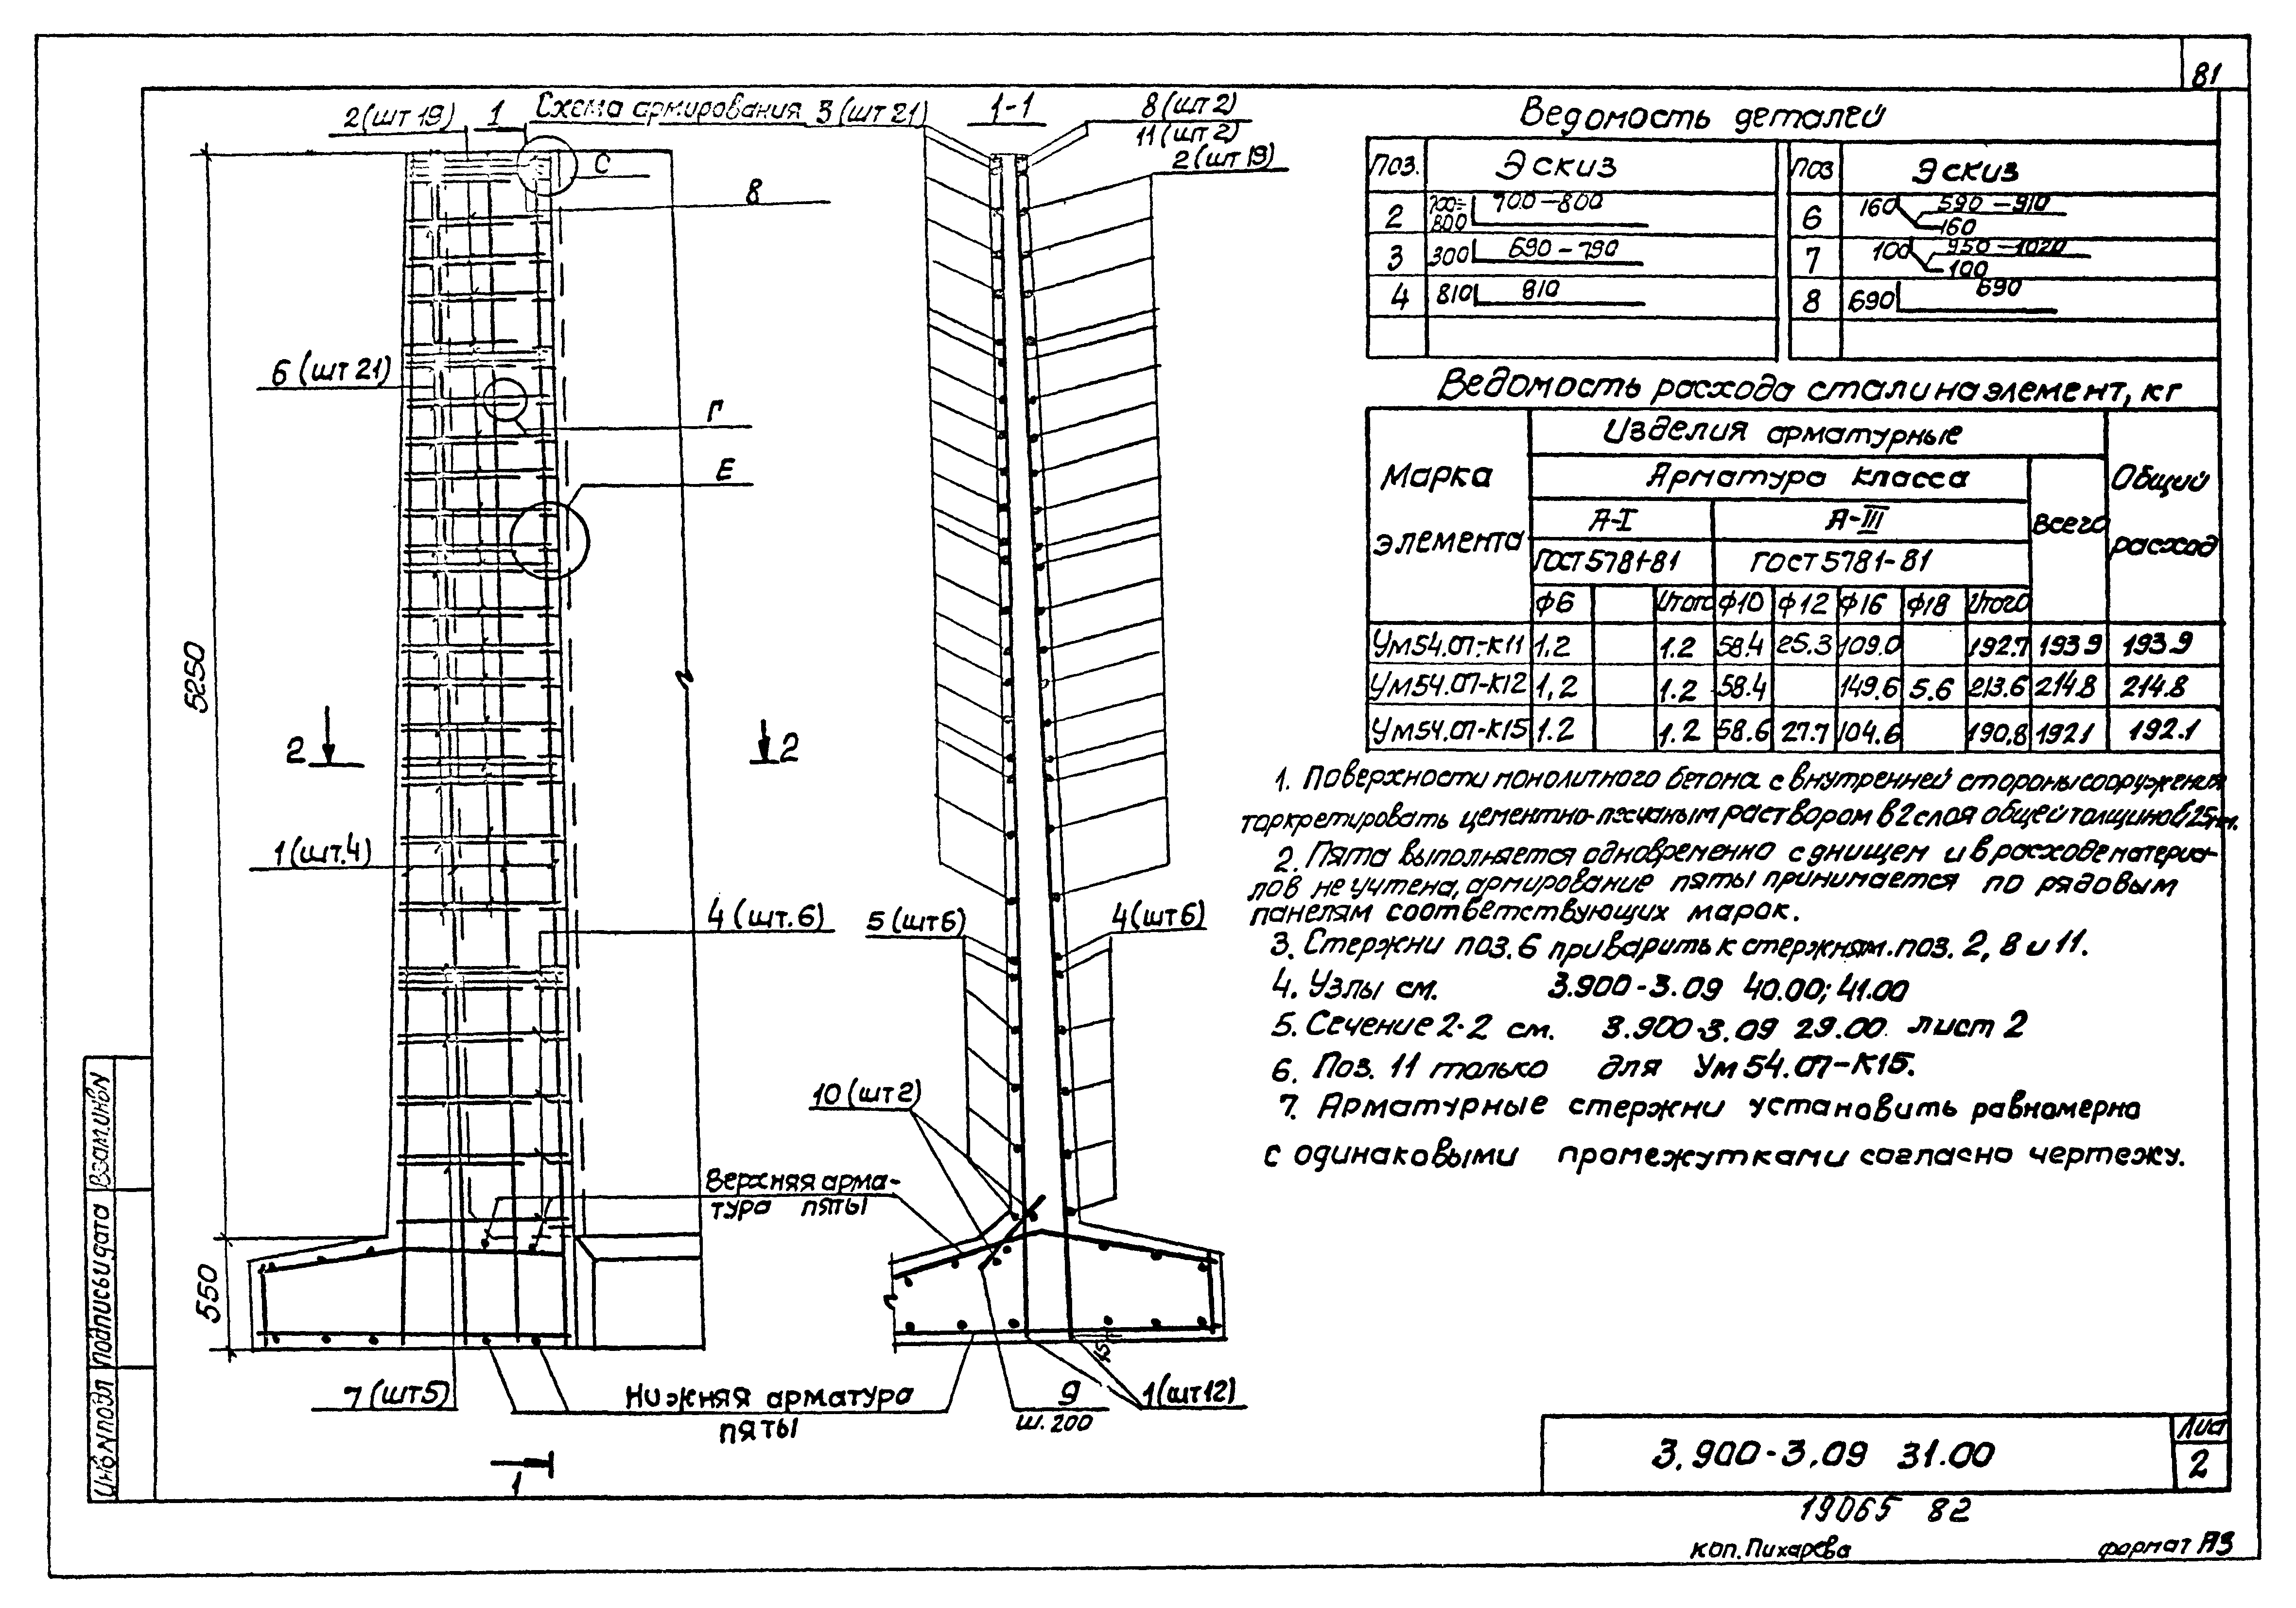 81
Схема армирования
2 (шт 19)
1
3 (шт 21)
1-1
8 (шт 2)
11 (шт 2)
2 (шт 19)
С
8
6 (шт 21)
Г
Е
5250
2
2
1 (шт.4)
4 (шт.6)
5 (шт6)
4 (шт6)
10 (шт2)
Верхняя арма-
тура пяты
550
7 (шт5)
Нижняя арматура
пяты
9
ш. 200
1 (шт12)
1
Ведомость деталей
Поз. Эскиз Поз Эскиз
2 700÷800 700-800 6 160 590-910 160
3 300 690-790 7 100 950-1020 100
4 810 810 8 690 690
Ведомость расхода стали на элемент, кг
Марка элемента
Изделия арматурные
Арматура класса
Всего
Общий расход
А-I А-III
ГОСТ 5781-81 ГОСТ 5781-81
ф6 Итого ф10 ф12 ф16 ф18 Итого
Ум54.07-К11 1.2 1.2 58.4 25.3 109.0 192.7 193.9 193.9
Ум54.07-К12 1,2 1.2 58.4 149.6 5.6 213.6 214.8 214.8
Ум54.07-К15 1.2 1.2 58.6 27.7 104.6 190.8 192.1 192.1
1. Поверхности монолитного бетона с внутренней стороны сооружения
торкретировать цементно-песчаным раствором в 2 слоя общей толщиной 25мм.
2. Пята выполняется одновременно с днищем и в расходе материа-
лов не учтена, армирование пяты принимается по рядовым
панелям соответствующих марок.
3. Стержни поз. 6 приварить к стержням. поз. 2, 8 и 11.
4. Узлы см. 3.900-3.09 40.00; 41.00
5. Сечение 2-2 см. 3.900-3.09 29.00 лист 2
6. Поз. 11 только для Ум 54.07-К15.
7. Арматурные стержни установить равномерно
с одинаковыми промежутками согласно чертежу.
Инв.N подл Подпись и дата Взам.инв N
3.900-3.09 31.00
Лист
2
19065 82
коп. Пихарева
формат А3